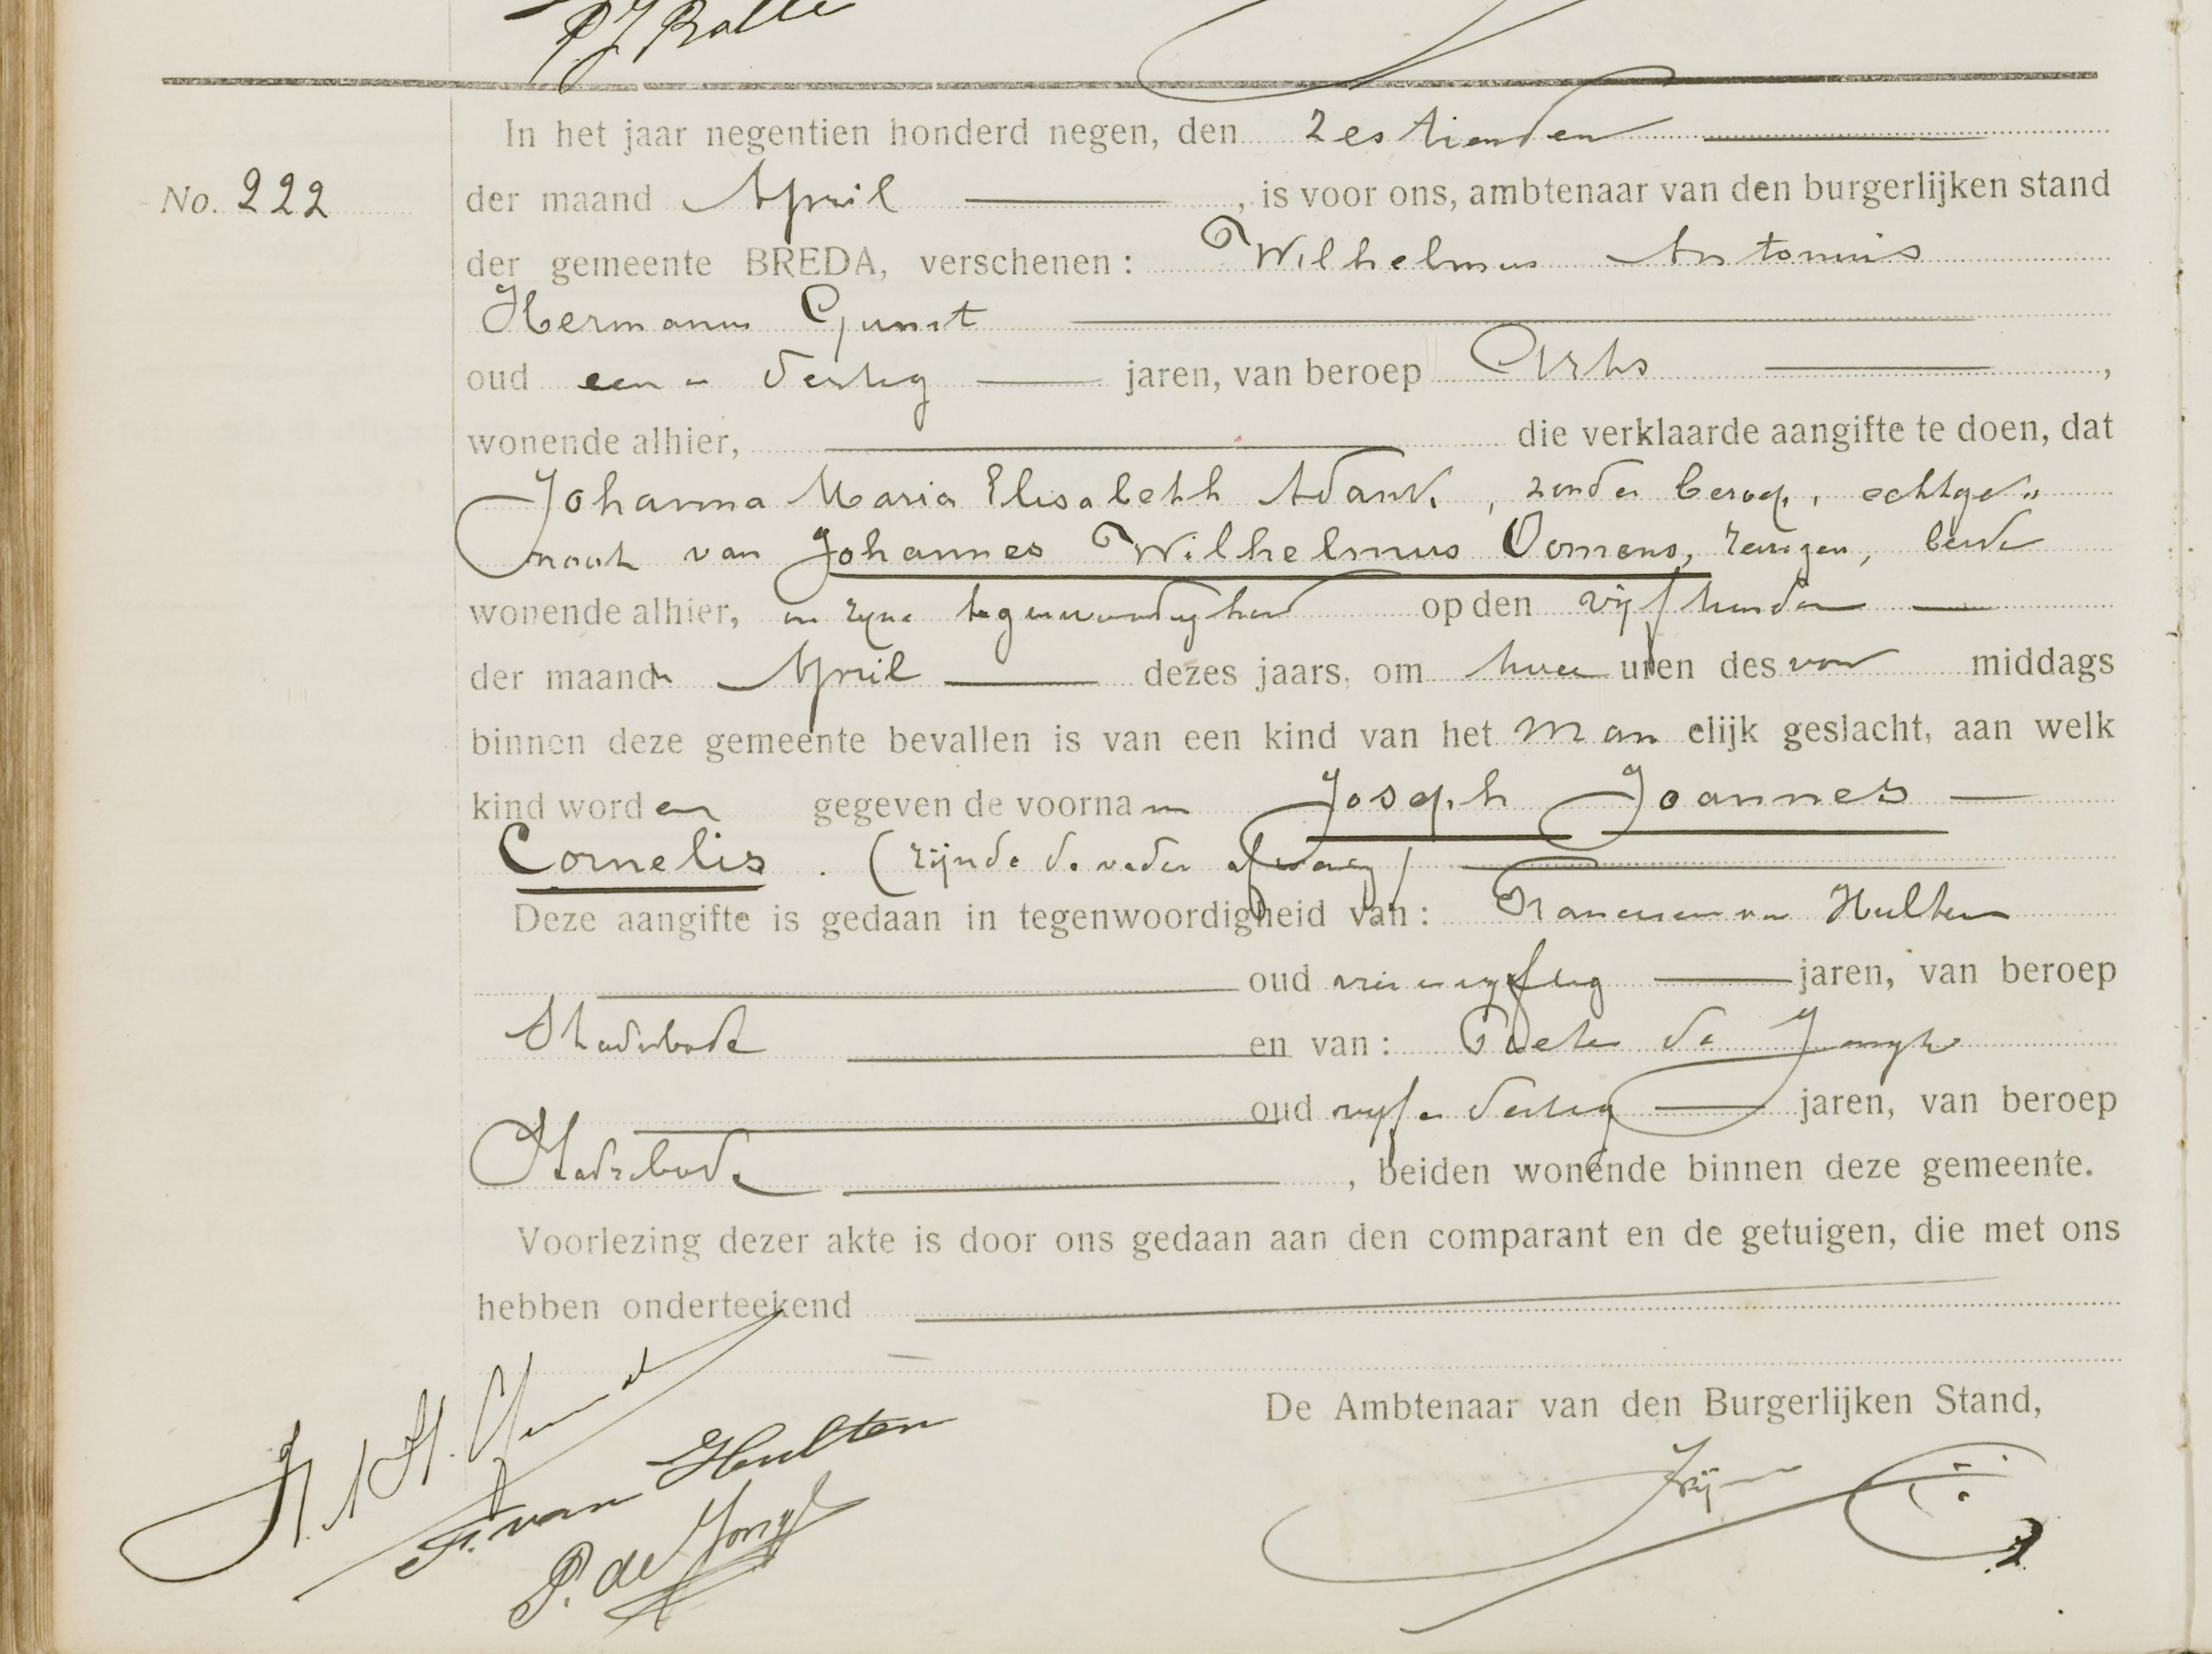 P J Balle
In het jaar negentien honderd negen, den zestienden
No. 222
der maand April, is voor ons, ambtenaar van den burgerlijken stand
der gemeente BREDA, verschenen: Wilhelmus Antonius
Hermanus Gunst
oud een en dertig jaren, van beroep Arts,
wonende alhier, die verklaarde aangifte te doen, dat
Johanna Maria Elisabeth Adank, zonder beroep, echtge„
noot van Johannes Wilhelmus Oomens, reiziger, beide
wonende alhier, in zijne tegenwoordigheid op den vijftienden
der maand April dezes jaars, om twee uren des voor middags
binnen deze gemeente bevallen is van een kind van het man elijk geslacht, aan welk
kind worden gegeven de voornamen Joseph Joannes
Cornelis. (zijnde de vader afwezig)
Deze aangifte is gedaan in tegenwoordigheid van: Franciscus van Hulten
oud vijftig jaren, van beroep
Stadsbode en van: Pieter de Jongh
oud vijf en dertig jaren, van beroep
Stadsbode, beiden wonende binnen deze gemeente.
Voorlezing dezer akte is door ons gedaan aan den comparant en de getuigen, die met ons
hebben onderteekend
De Ambtenaar van den Burgerlijken Stand,
W. A. H. Gunst
F. van Hulten
P. de Jongh